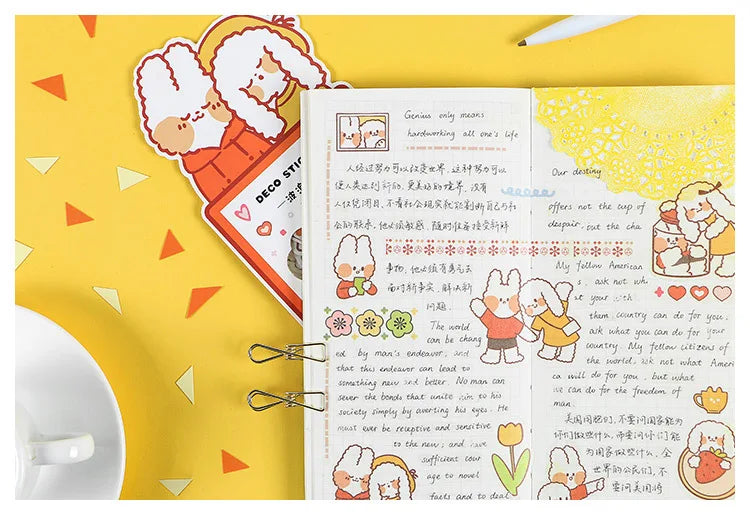 DECO STIC
Genius only means
hardworking all one's life
人经过努力可以改变世界,这种努力可以
使人类达到新的、更美好的境界。没有
人仅凭闭目、不看社会现实就能割断自己与社
会的联系。他必须敏感、随时准备接受新鲜
事物,他必须有勇气去
面对新事实,解决新
问题。
The world
can be chang
ed by man's endeavor, and
that this endeavor can lead to
something new and better. No man can
sever the bonds that unite him to his
society simply by averting his eyes. He
must ever be receptive and sensitive
to the new; and have
sufficient cour
age to novel
facts and to deal
Our destiny
offers not the cup of
despair, but the cha
My fellow American
s, ask not wh
at your
them, country can do for you;
ask what you can do for your
country. My fellow citizens of
the world, ask not what Ameri
ca will do for you, but what
we can do for the freedom of
man.
美国同胞们,不要问国家能为
你们做些什么,而要问你们能
为国家做些什么。全
世界的公民们,不
要问美国将